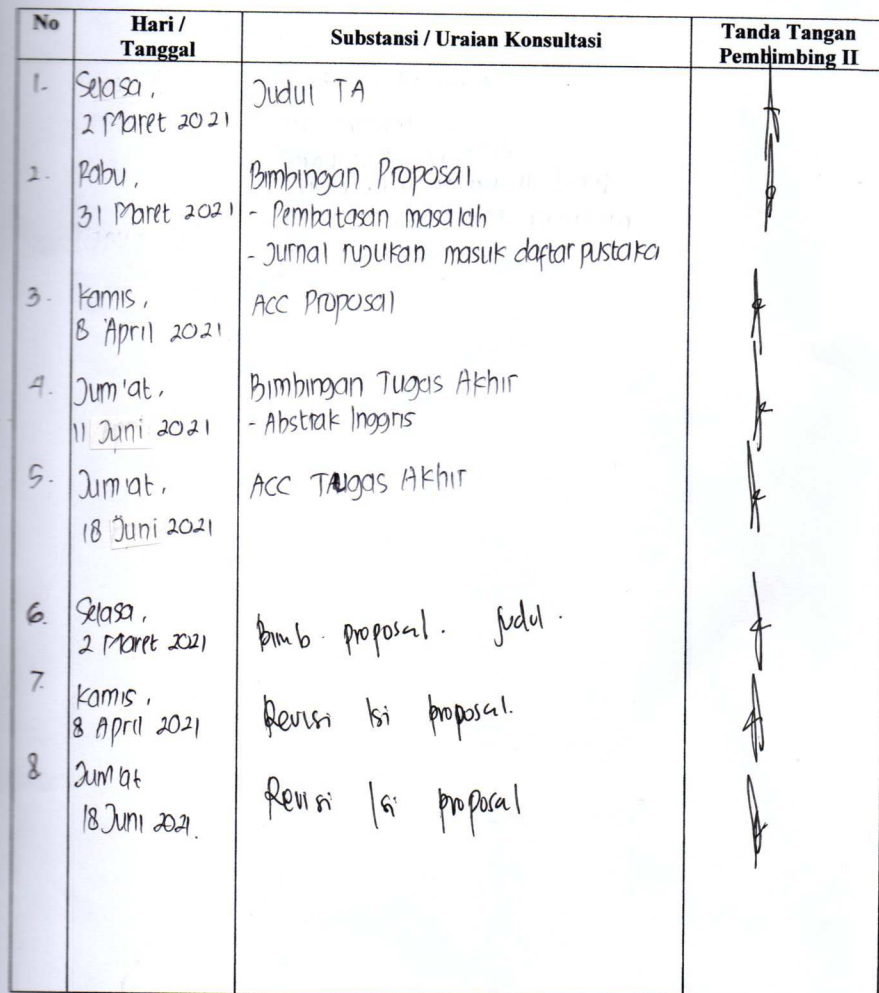 No
Hari /
Tanggal
Substansi / Uraian Konsultasi
Tanda Tangan
Pembimbing II
1.
Selasa,
2 Maret 2021
Judul TA
2.
Rabu,
31 Maret 2021
Bimbingan Proposal
- Pembatasan masalah
- Jurnal rujukan masuk daftar pustaka
3.
Kamis,
8 April 2021
ACC Proposal
4.
Jum'at,
11 Juni 2021
Bimbingan Tugas Akhir
- Abstrak Inggris
5.
Jum'at,
18 Juni 2021
ACC Tugas Akhir
6.
Selasa,
2 Maret 2021
Bimb. proposal. Judul.
7.
Kamis,
8 April 2021
Revisi Isi proposal.
8
Jum'at
18 Juni 2021.
Revisi Isi proposal